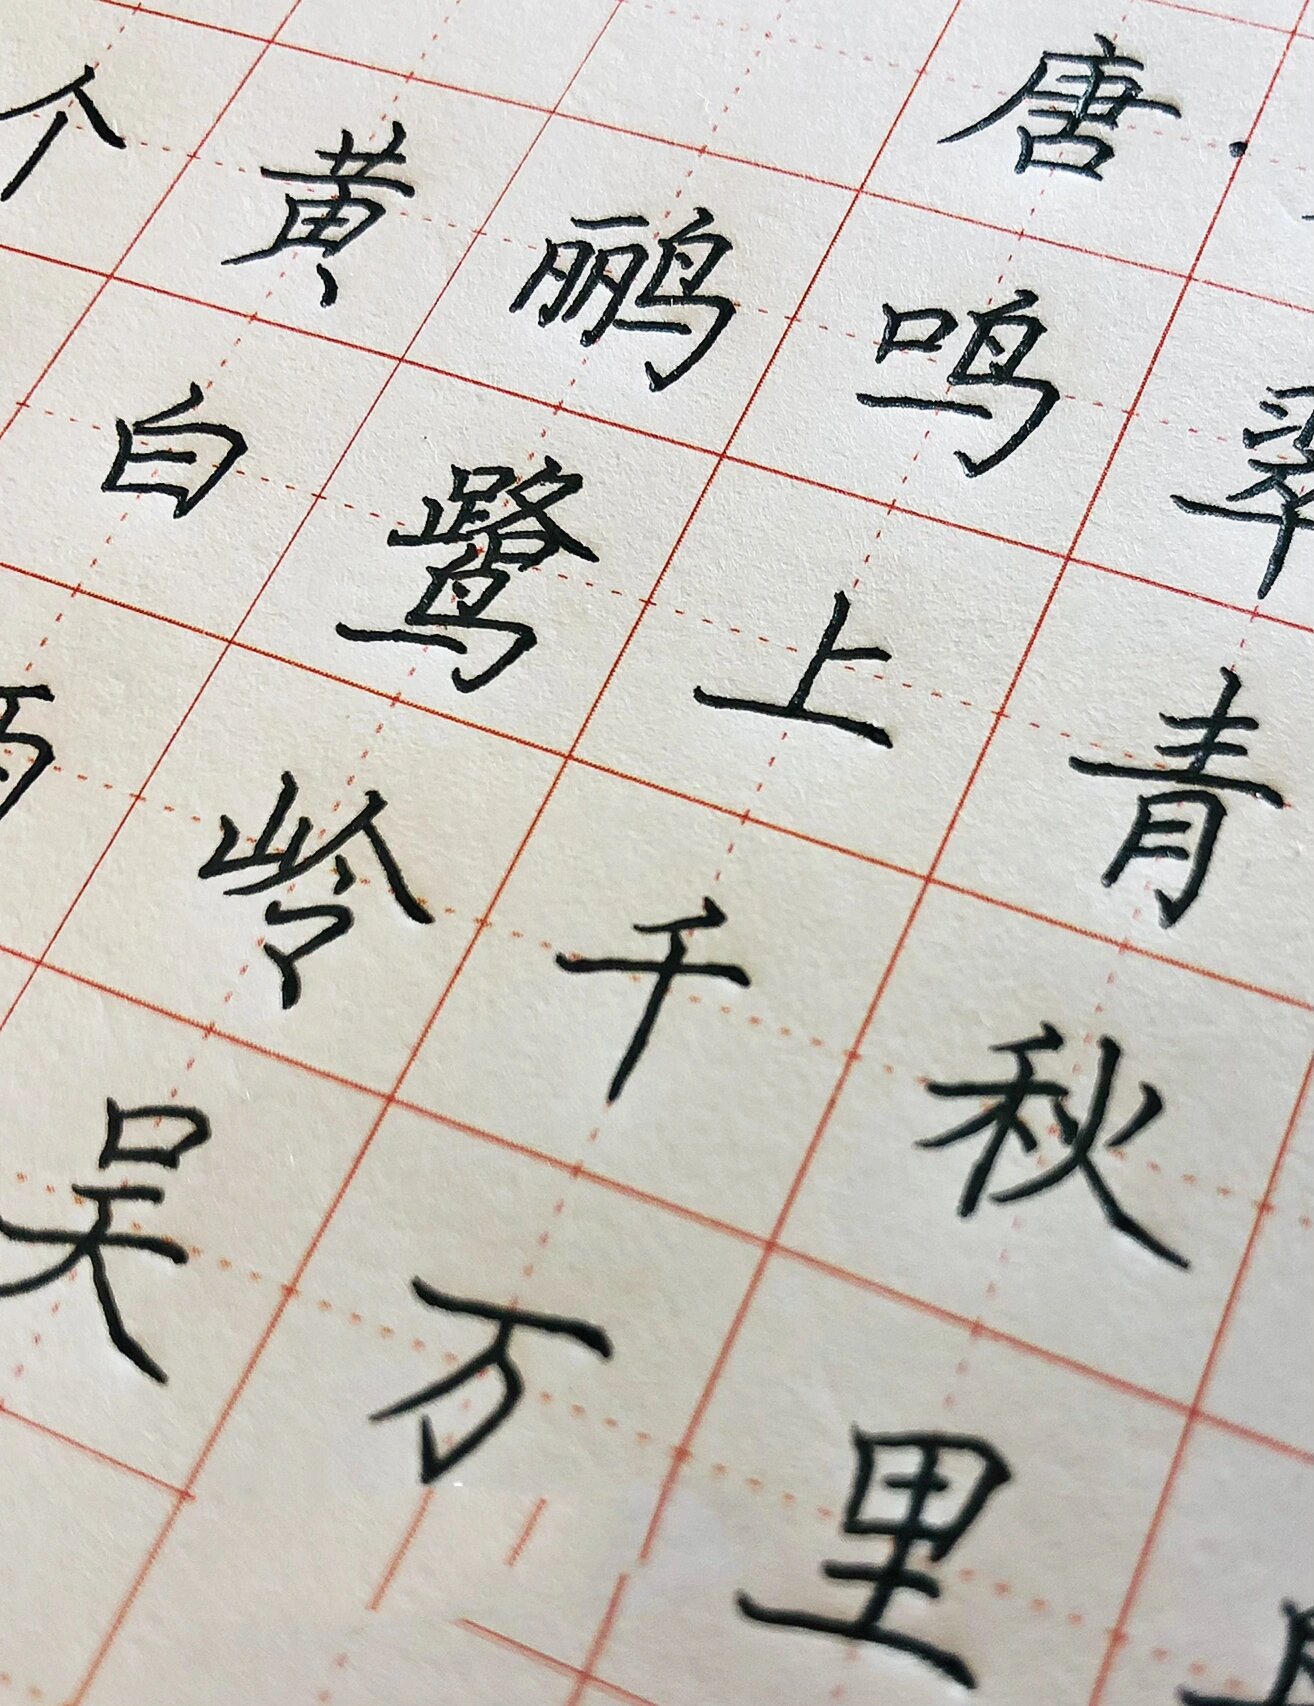 唐·
个黄鹂鸣翠
白鹭上青
岭千秋
吴万里